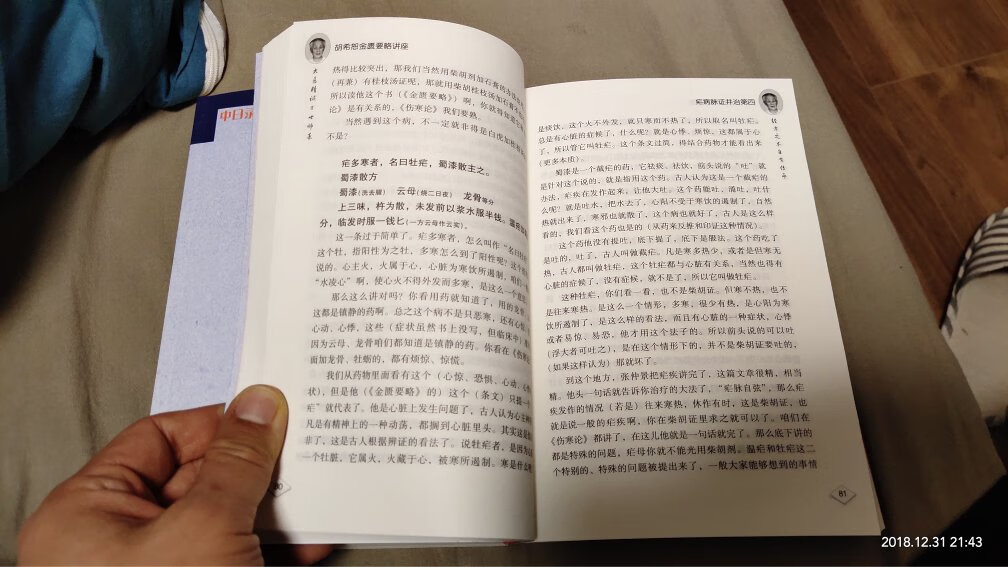 胡希恕金匮要略讲座
大惠精诚
热得比较突出，那我们当然用柴胡剂加石膏的办法
（再兼）有桂枝汤证呢，那就用柴胡桂枝汤加石膏
所以读他这个书（《金匮要略》）啊，你就得知道
论》是有关系的，《伤寒论》我们要熟。
当然遇到这个病，不一定就非得是白虎加桂枝
不是？
疟多寒者，名曰牡疟，蜀漆散主之。
蜀漆散方
蜀漆（洗去腥） 云母（烧二日夜） 龙骨等分
上三味，杵为散，未发前以浆水服半钱。温疟加蜀
分，临发时服一钱匕（一方云母作云实）。
这一条过于简单了。疟多寒者，怎么叫作“名曰牡
这个牡，指阳性为之牡，多寒怎么到了阳性呢？这个
说的。心主火，火属于心，心脏为寒饮所遏制，咱们
“水凌心”啊，使心火不得外发而多寒，是这么一个意
那么这么讲对吗？你看用药就知道了，用的龙骨、
这都是镇静的药啊。总之这个病不是只恶寒，还有心
心动、心悸，这些（症状虽然书上没写，但临床中）
因为云母、龙骨咱们都知道是镇静的药。你看在《伤寒
面加龙骨、牡蛎的，都有烦惊、惊慌。
我们从药物里面看有这个（心惊、恐惧、心动、心悸
状），但是他（《金匮要略》的）这个（条文）只提一
疟”就代表了。他是心脏上发生问题了，古人认为心主神
凡是有精神上的一种动荡，都搁到心脏里头。其实这是
非了，这是古人根据辨证的看法了。说牡疟者，是因为
一个牡脏，它属火，火藏于心，被寒所遏制。寒是什么呢
80
疟病脉证并治第四
是痰饮。这个火不外发，就只寒而不热了，所以取名叫牡疟。
总是有心脏的症候了，什么呢？就是心悸、烦惊。这都属于心
了，所以管它叫牡疟。这个条文过简，得结合药物才能看出来
（更多本质）。
蜀漆是一个截疟的药，它祛痰、祛饮，前头说的“吐”就
是针对这个说的，就是指用这个药。古人认为这是一个截疟的
办法，疟疾在发作起来，让他大吐。这个药能吐，涌吐，吐什
么呢？就是吐水，把水去了，心阳不受于寒饮的遏制了，自然
热就出来了，寒邪也就散了，这个病也就好了，古人是这么样
看的，我们看这个药也是的（从药来反推和印证这种情况）。
这个药他没有提吐，底下搁了，底下是服法。这个药吃了
是吐的，吐了，古人叫做截疟。凡是寒多热少，或者是但寒无
热，古人都叫做牡疟，这个牡疟都与心脏有关系，当然也得有
心脏的症候了，没有症候，就不是了，所以它叫做牡疟。
这种牡疟，你们看一看，也不是柴胡证。但寒不热，也不
是往来寒热。是这么一个情形，多寒，很少有热，是心阳为寒
饮所遏制了，是这么样的看法，而且有心脏的一种症状，心悸
或者易惊、易恐，他才用这个法子的。所以前头说的可以吐
（浮大者可吐之），是在这个情形下的，并不是柴胡证要吐的，
（如果这样认为）那就坏了。
到这个地方，张仲景把疟疾讲完了，这篇文章很精，相当
精。他头一句话就告诉你治疗的大法了，“疟脉自弦”，那么疟
疾发作的情况（若是）往来寒热，休作有时，这是柴胡证，也
就是说一般的疟疾啊，你在柴胡证里求之就可以了。咱们在
《伤寒论》都讲了，在这儿他就是一句话就完了。那么底下讲的
都是特殊的问题，疟母你就不能光用柴胡剂。温疟和牡疟这二
个特别的、特殊的问题被提出来了，一般大家能够想到的事情
81
中日
2018.12.31 21:43